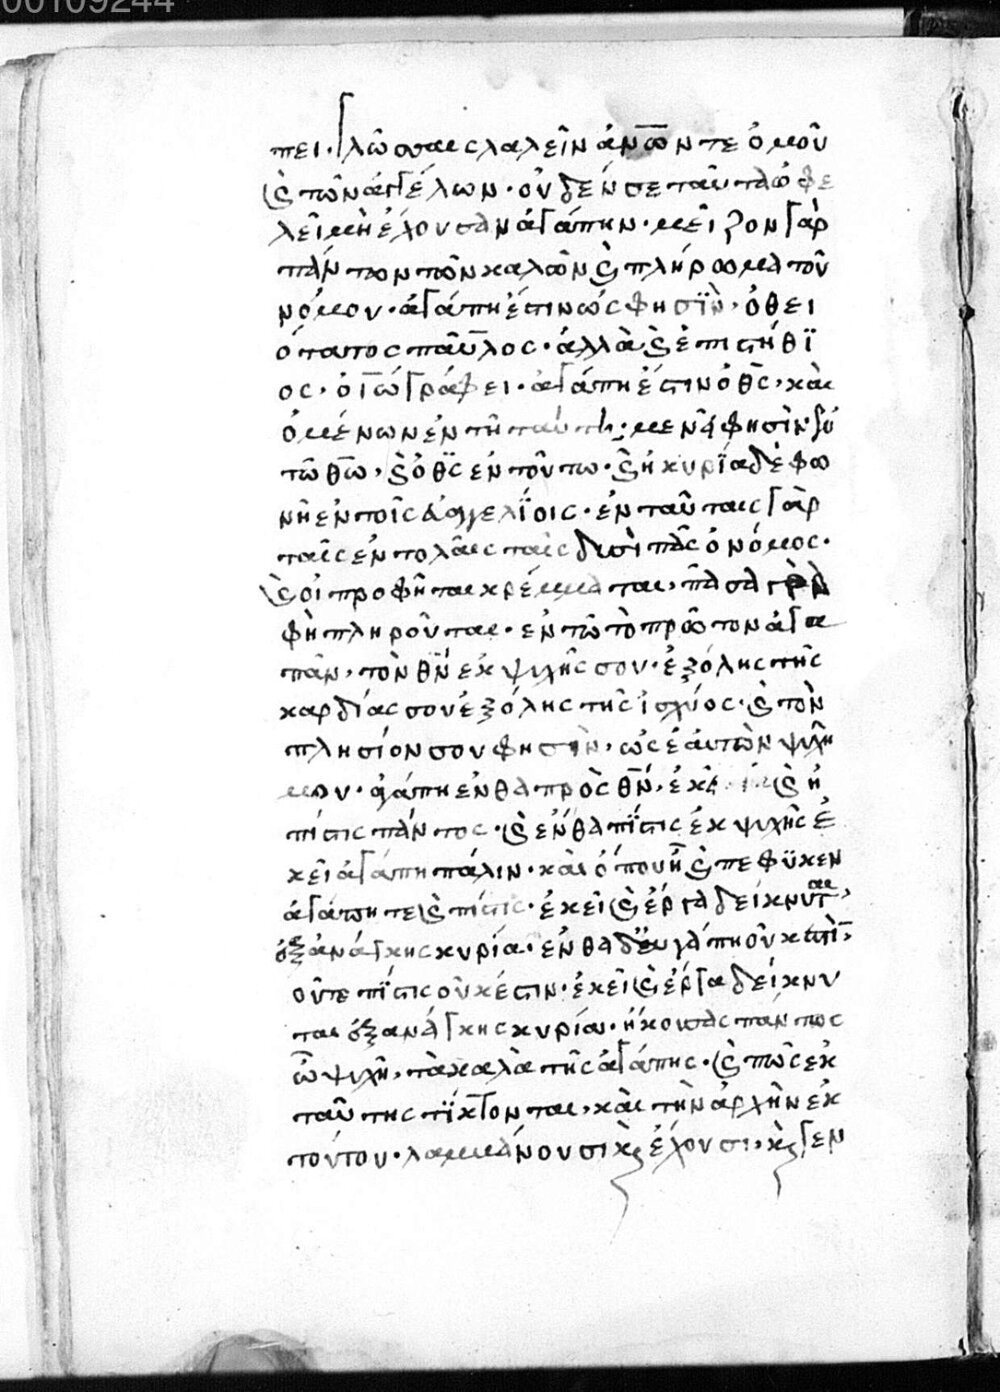 00109244
πει. Γλώσσαις λαλεῖν ἀν̅ω̅ν τε ὁμοῦ
ϗ τῶν ἀγγέλων· οὐδέν σε ταῦτα ὠφε
λεῖ μὴ ἔχουσαν ἀγάπην· μεῖζον γὰρ
πάντων τῶν καλῶν ϗ πλήρωμα τοῦ
νόμου· ἀγάπη ἐστὶν ὥς φησϊν· ὁ θεῖ
ότατος παῦλος· ἀλλὰ ϗ ἐπιστήθϊ
ος· ὁ ἰω̅ γράφει· ἀγάπη ἐστιν ὁ θ̅ς, καὶ
ὁ μένων ἐν τῆ ταύτη· μένει φησὶν
τῶ θ̅ω, ϗ ὁ θ̅ς ἐν τούτω· ϗ ἡ κυρϊα δὲ φω
νὴ ἐν τοῖς εὐαγγελΐοις· ἐν ταῦταις γὰρ
ταῖς ἐντολαῖς ταῖς δυσὶ πᾶς ὁ νόμος·
ϗ οἱ προφῆται κρέμμαται, πᾶσα
φὴ πληροῦται· ἐν τῶ τὸ πρῶτον ἀγα
πᾶν, τὸν θ̅ν ἐκ ψυχῆς σου· ἐξόλης τῆς
καρδίας σου ἐξόλης τῆς ἰσχύος· ϗ τὸν
πλησίον σου φησὶν, ὡς ἑαυτὸν ψυχή
μου· ἀγάπη ἔνθα πρὸς θ̅ν, ἐκεῖ ϗ ἡ
πίστις πάντος· ϗ ἔνθα πΐστις ἐκ ψυχῆς ἐ
κεῖ ἀγάπη πάλιν· καὶ ὅπου ἦ ϗ πεφϋκεν
ἀγάπη τε ϗ πίστις· ἐκεῖ ϗ ἔργα δείκνυται,
ἐξανάγκης κυρία· ἔνθα δὲ ἀγάπη οὐκ ἔστι,
οὔτε πίστις οὐκέστιν· ἐκεῖ ϗ ἔργα δείκνυ
ται ἐξανάγκης κυρία· ἤκουσας πάντως
ὦ ψυχῆ, τὰ καλὰ τῆς ἀγάπης· ϗ πῶς ἐκ
ταύτης τϊκτονται, καὶ τὴν ἀρχὴν ἐκ
τούτου· λαμμάνουσι κ̀ ἔχουσι, κ̀ γεν